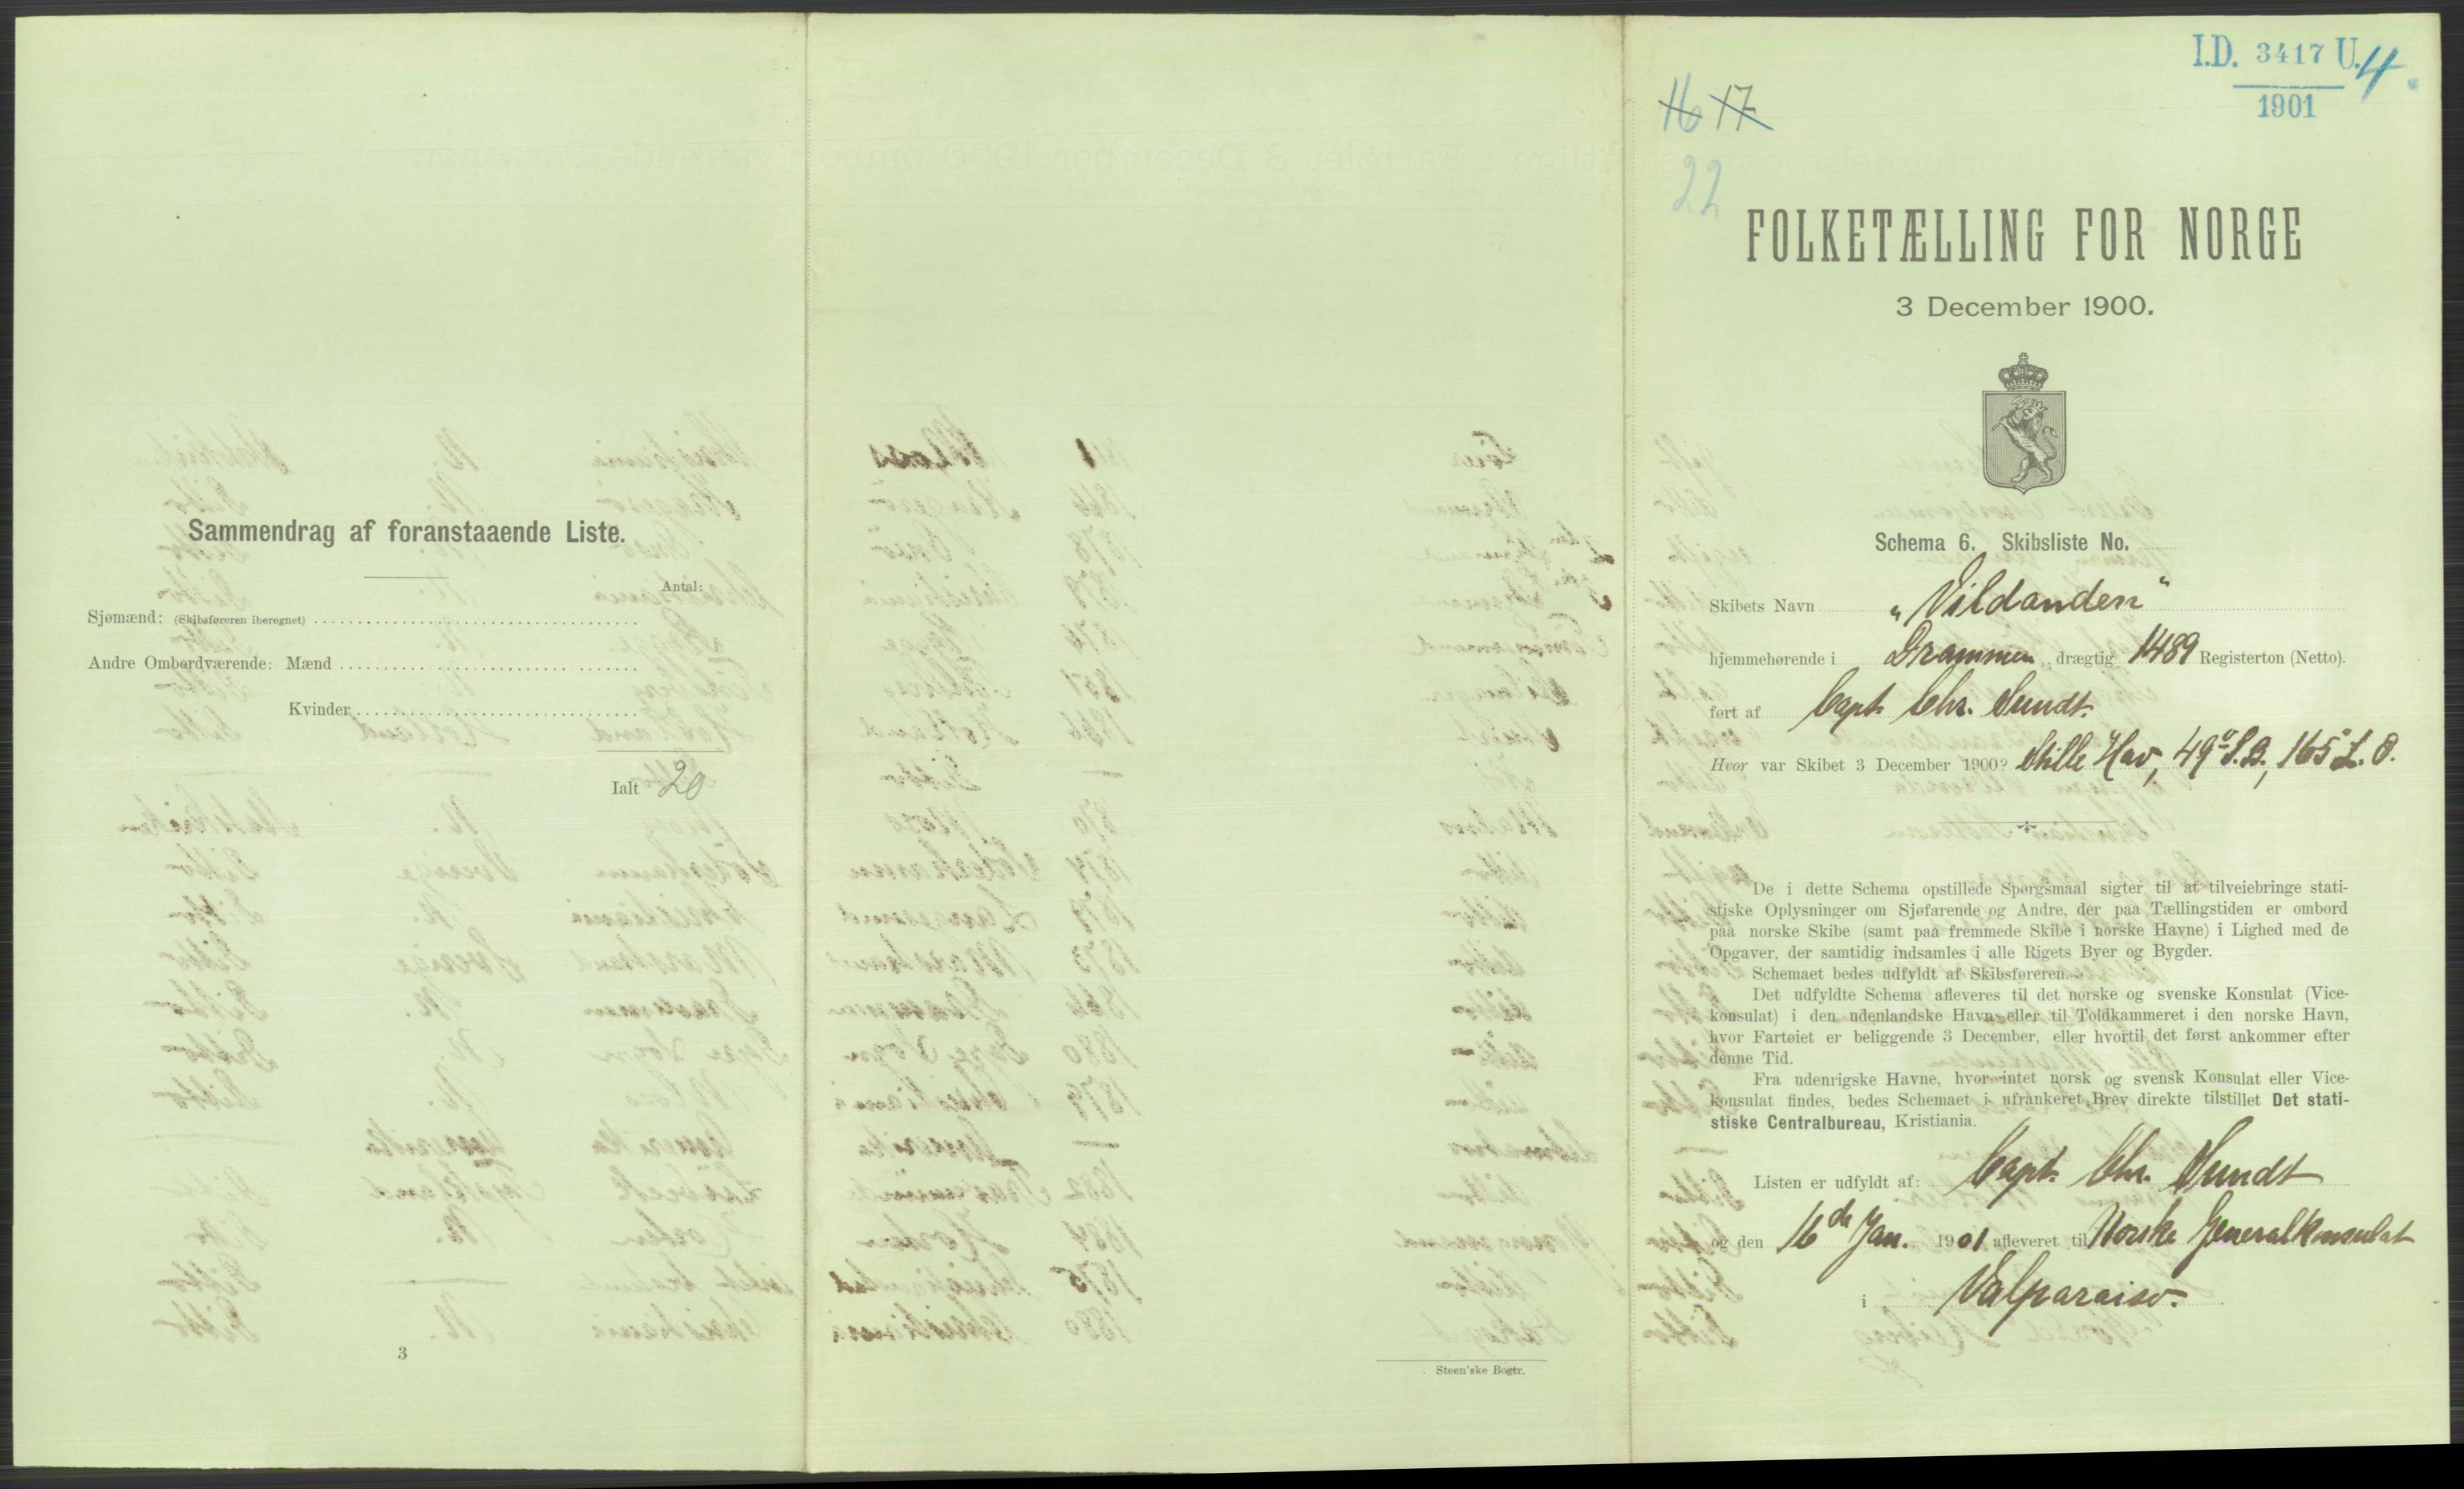 Sammendrag af foranstaaende Liste.
Antal:
Sjømænd: (Skibsføreren iberegnet)
Andre Ombordværende: Mænd
Kvinder
Ialt 20
3
Steen'ske Bogtr.
I.D. 3417 U. 4.
1901
16 17
22
FOLKETÆLLING FOR NORGE
3 December 1900.
Schema 6. Skibsliste No.
Skibets Navn „Vildanden"
hjemmehørende i Drammen, drægtig 1489 Registerton (Netto).
ført af Capt. Chr. Sundt.
Hvor var Skibet 3 December 1900? Stille Hav, 49° S.B., 165° L. O.
De i dette Schema opstillede Spørgsmaal sigter til at tilveiebringe stati-
stiske Oplysninger om Sjøfarende og Andre, der paa Tællingstiden er ombord
paa norske Skibe (samt paa fremmede Skibe i norske Havne) i Lighed med de
Opgaver, der samtidig indsamles i alle Rigets Byer og Bygder.
Schemaet bedes udfyldt af Skibsføreren.
Det udfyldte Schema afleveres til det norske og svenske Konsulat (Vice-
konsulat) i den udenlandske Havn eller til Toldkammeret i den norske Havn,
hvor Fartøiet er beliggende 3 December, eller hvortil det først ankommer efter
denne Tid.
Fra udenrigske Havne, hvor intet norsk og svensk Konsulat eller Vice-
konsulat findes, bedes Schemaet i ufrankeret Brev direkte tilstillet Det stati-
stiske Centralbureau, Kristiania.
Listen er udfyldt af: Capt. Chr. Sundt
og den 16de Jan. 1901 afleveret til Norske Generalkonsulat
i Valparaiso.